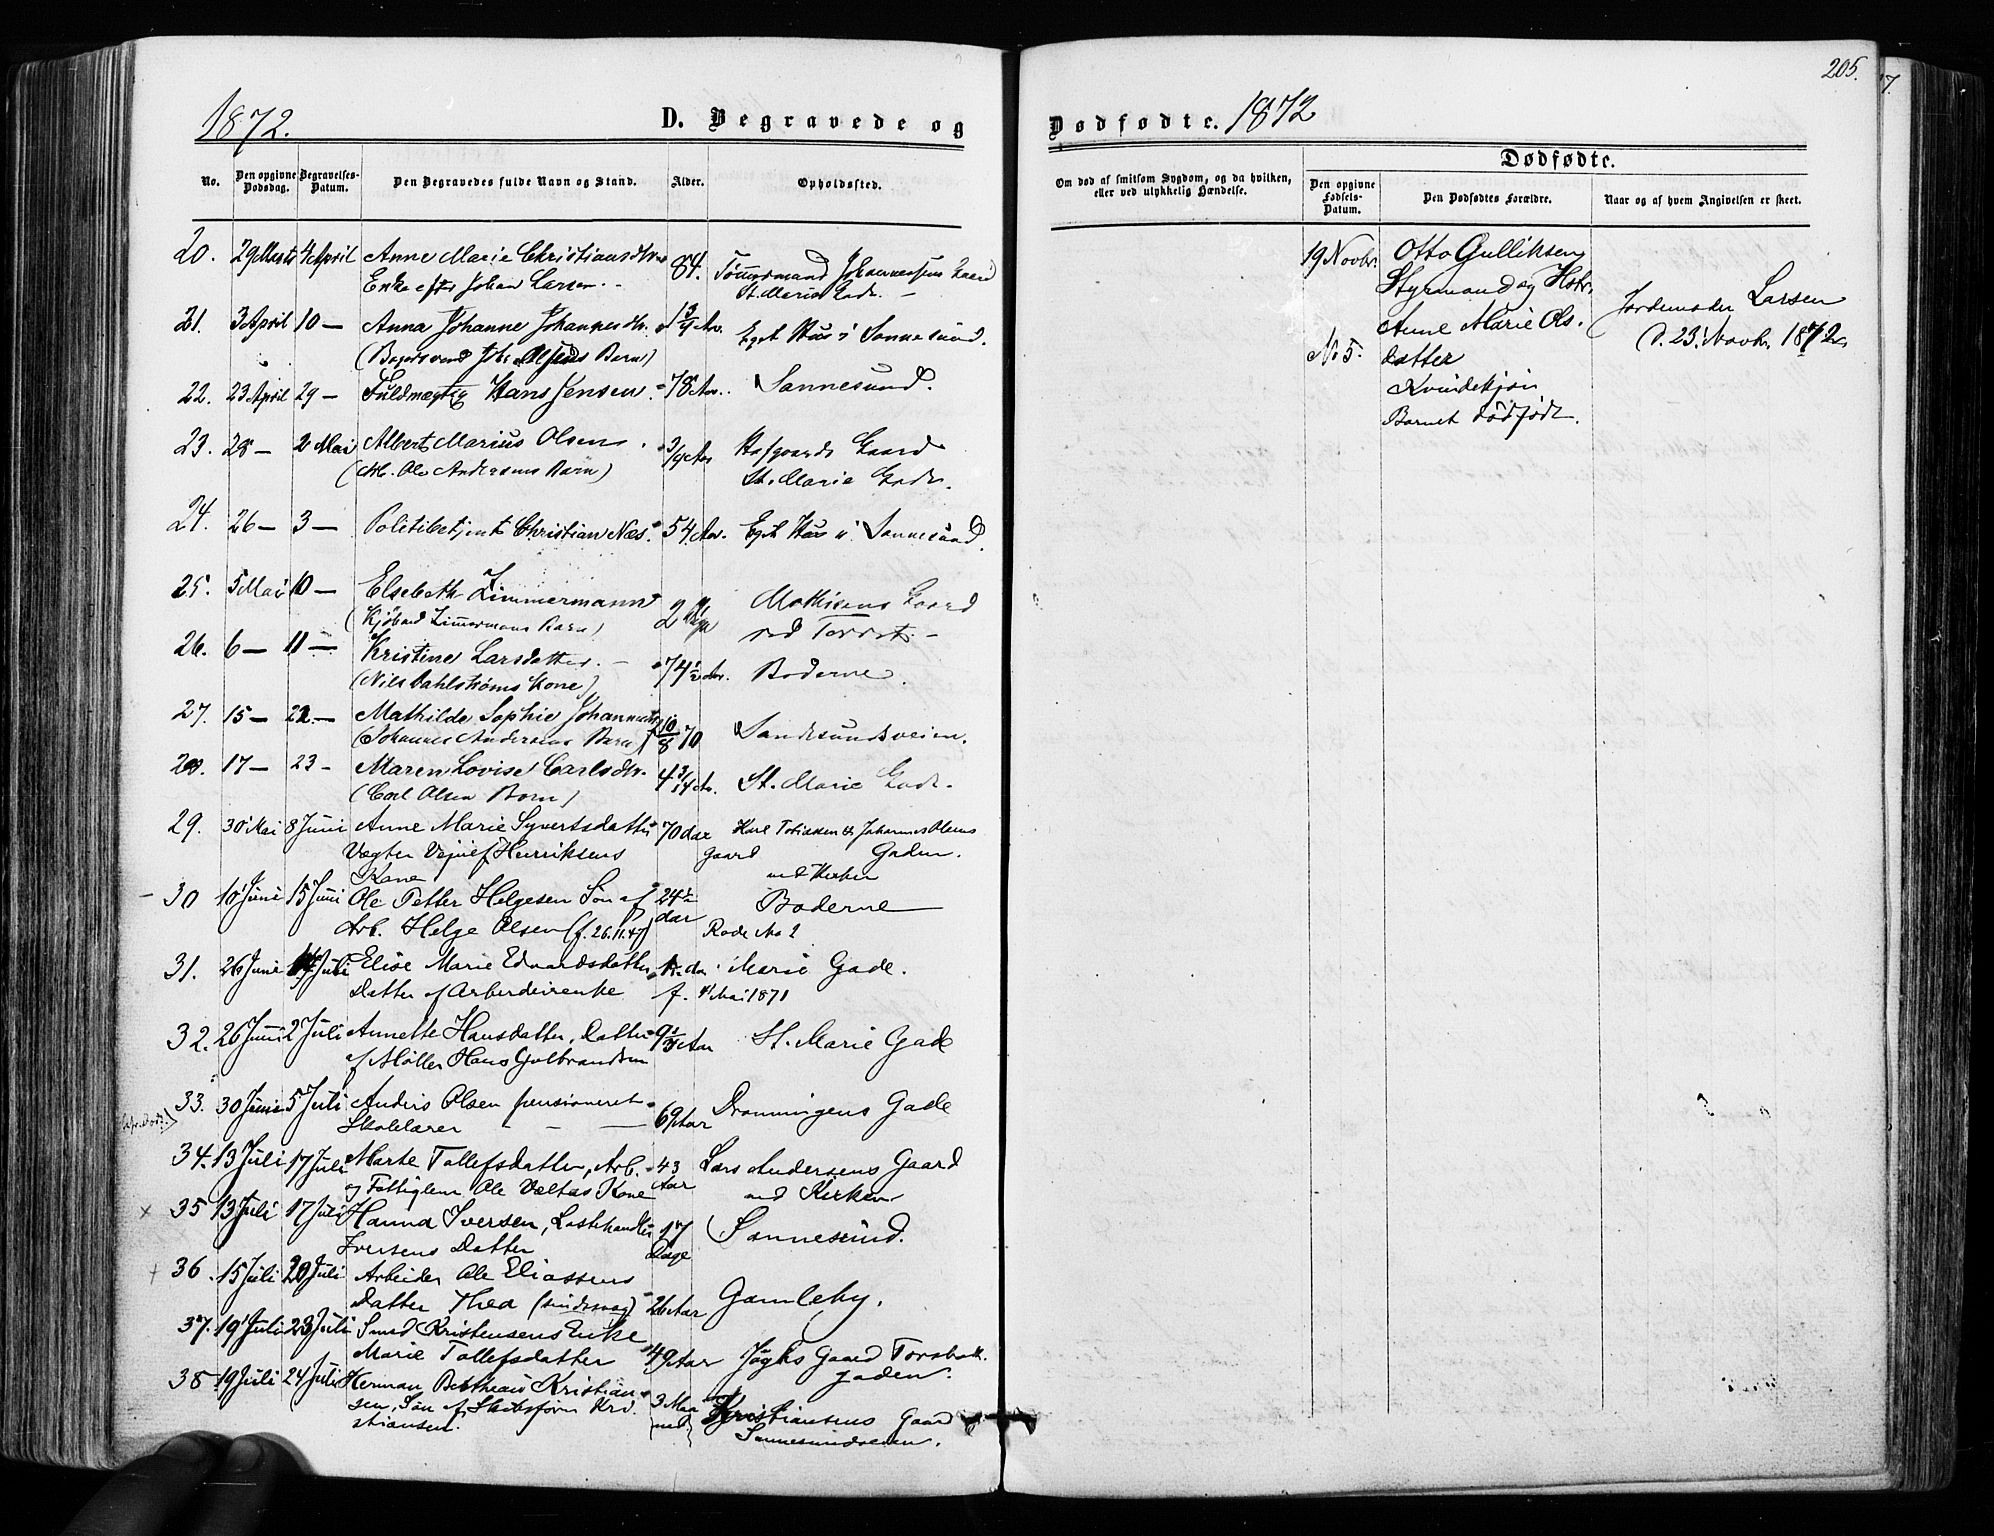 1872.
D. Begravede og
No.
Den opgivne Dødsdag.
Begravelses-Datum.
Den Begravedes fulde Navn og Stand.
Alder.
Opholdssted.
20. 29 Marts 4 April Anne Marie Christiansdtr. 84. Tömmermand Johannessens Gaard
Enke efter Johan Larsen. - St. Marie Gade. -
21. 3 April 10 - Anna Johanne Johannesdtr. 1 3/4 Aar. Eget Hus i Sannesund.
(Joh. Olsens Barn)
22. 23 April 29 - Fuldmægtig Hans Jensen. 78 Aar. Sannesund.
23. 28 - 2 Mai Albert Marius Olsen. 3/4 Aar Hafgaards Gaard
(Arb. Ole Andersens Barn) St. Marie Gade.
24. 26 - 3 - Politibetjent Christian Næs. 54 Aar. Eget Hus i Sannesund.
25. 5 Mai 10 - Elsebeth Zimmermann 2 Mathisens Gaard
(Kjöbmd Zimermans Barn) ved Torvet. -
26. 6 - 11 - Kristine Larsdatter. - 74 1/2 Aar. Boderne.
(Nils Dahlstrøms Kone)
27. 15 - 22 - Mathilde Sophie Johannesdtr. 10/8 70 Sandesundsveien.
(Johannes Andersens Barn)
28. 17 - 23 - Maren Lovise Carlsdtr. 4 3/4 Aar. St. Marie Gade.
(Carl Olsen Barn)
29. 30 Mai 8 Juni Anne Marie Syvertsdatter 70 aar Karl Tobiassen & Johannes Olsens
Vægter Henriksens Gaard Gaden
Kone ved Kirken
30 10 Juni 15 Juni Ole Petter Helgesen Søn af 24 1/2 Boderne
Arb. Helge Olsen (f. 26.11.47) aar Rode No 2
31. 26 Juni Juli Elise Marie Edvardsdatter Marie Gade.
Datter af f. 4 Mai 1871
32. 26 Juni 2 Juli Annette Hansdatter, Datter 9 Aar St. Marie Gade
af Møller Hans Gulbrandsen
33. 30 Junie 5 Juli Anders Olsen pensioneret 69 Aar Dronningens Gade
Skolelærer - - -
34. 13 Juli 17 Juli Marte Tollefsdatter, Arb. 43 Lars Andersens Gaard
og Fattiglem Ole Kone Aar ved Kirken
35 13 Juli 17 Juli Hanna Iversen, Lastehandler 17 Sannesund.
Iversens Datter Dage
36. 15 Juli 20 Juli Arbeider Ole Eliassens
Datter Thea (sindssvag) 26 Aar Gamleby.
37. 19 Juli 23 Juli Smed Kristensens Enke
Marie Tollefsdatter 49 Aar Gaard
gaden.
38 19 Juli 24 Juli Herman Kristian-
sen, Søn af Skibsfører Kri- 3 Maa Kristiansens Gaard
stiansen. ned Sannesundveien.
205.
Dødfødte. 1872
Om død af smitsom Sygdom, og da hvilken, eller ved ulykkelig Hændelse.
Dødfødte.
Den opgivne Fødsels-Datum.
Den Dødfødtes Forældre.
Naar og af hvem Angivelsen er skeet.
19 Novbr. Otto Gulliksen
Styrmand og Hstr.
Anne Marie Ols. Jordemoder Larsen
No 5. datter d. 23 Novbr. 1872.
Kvindekjön
Barnet dödfödt.